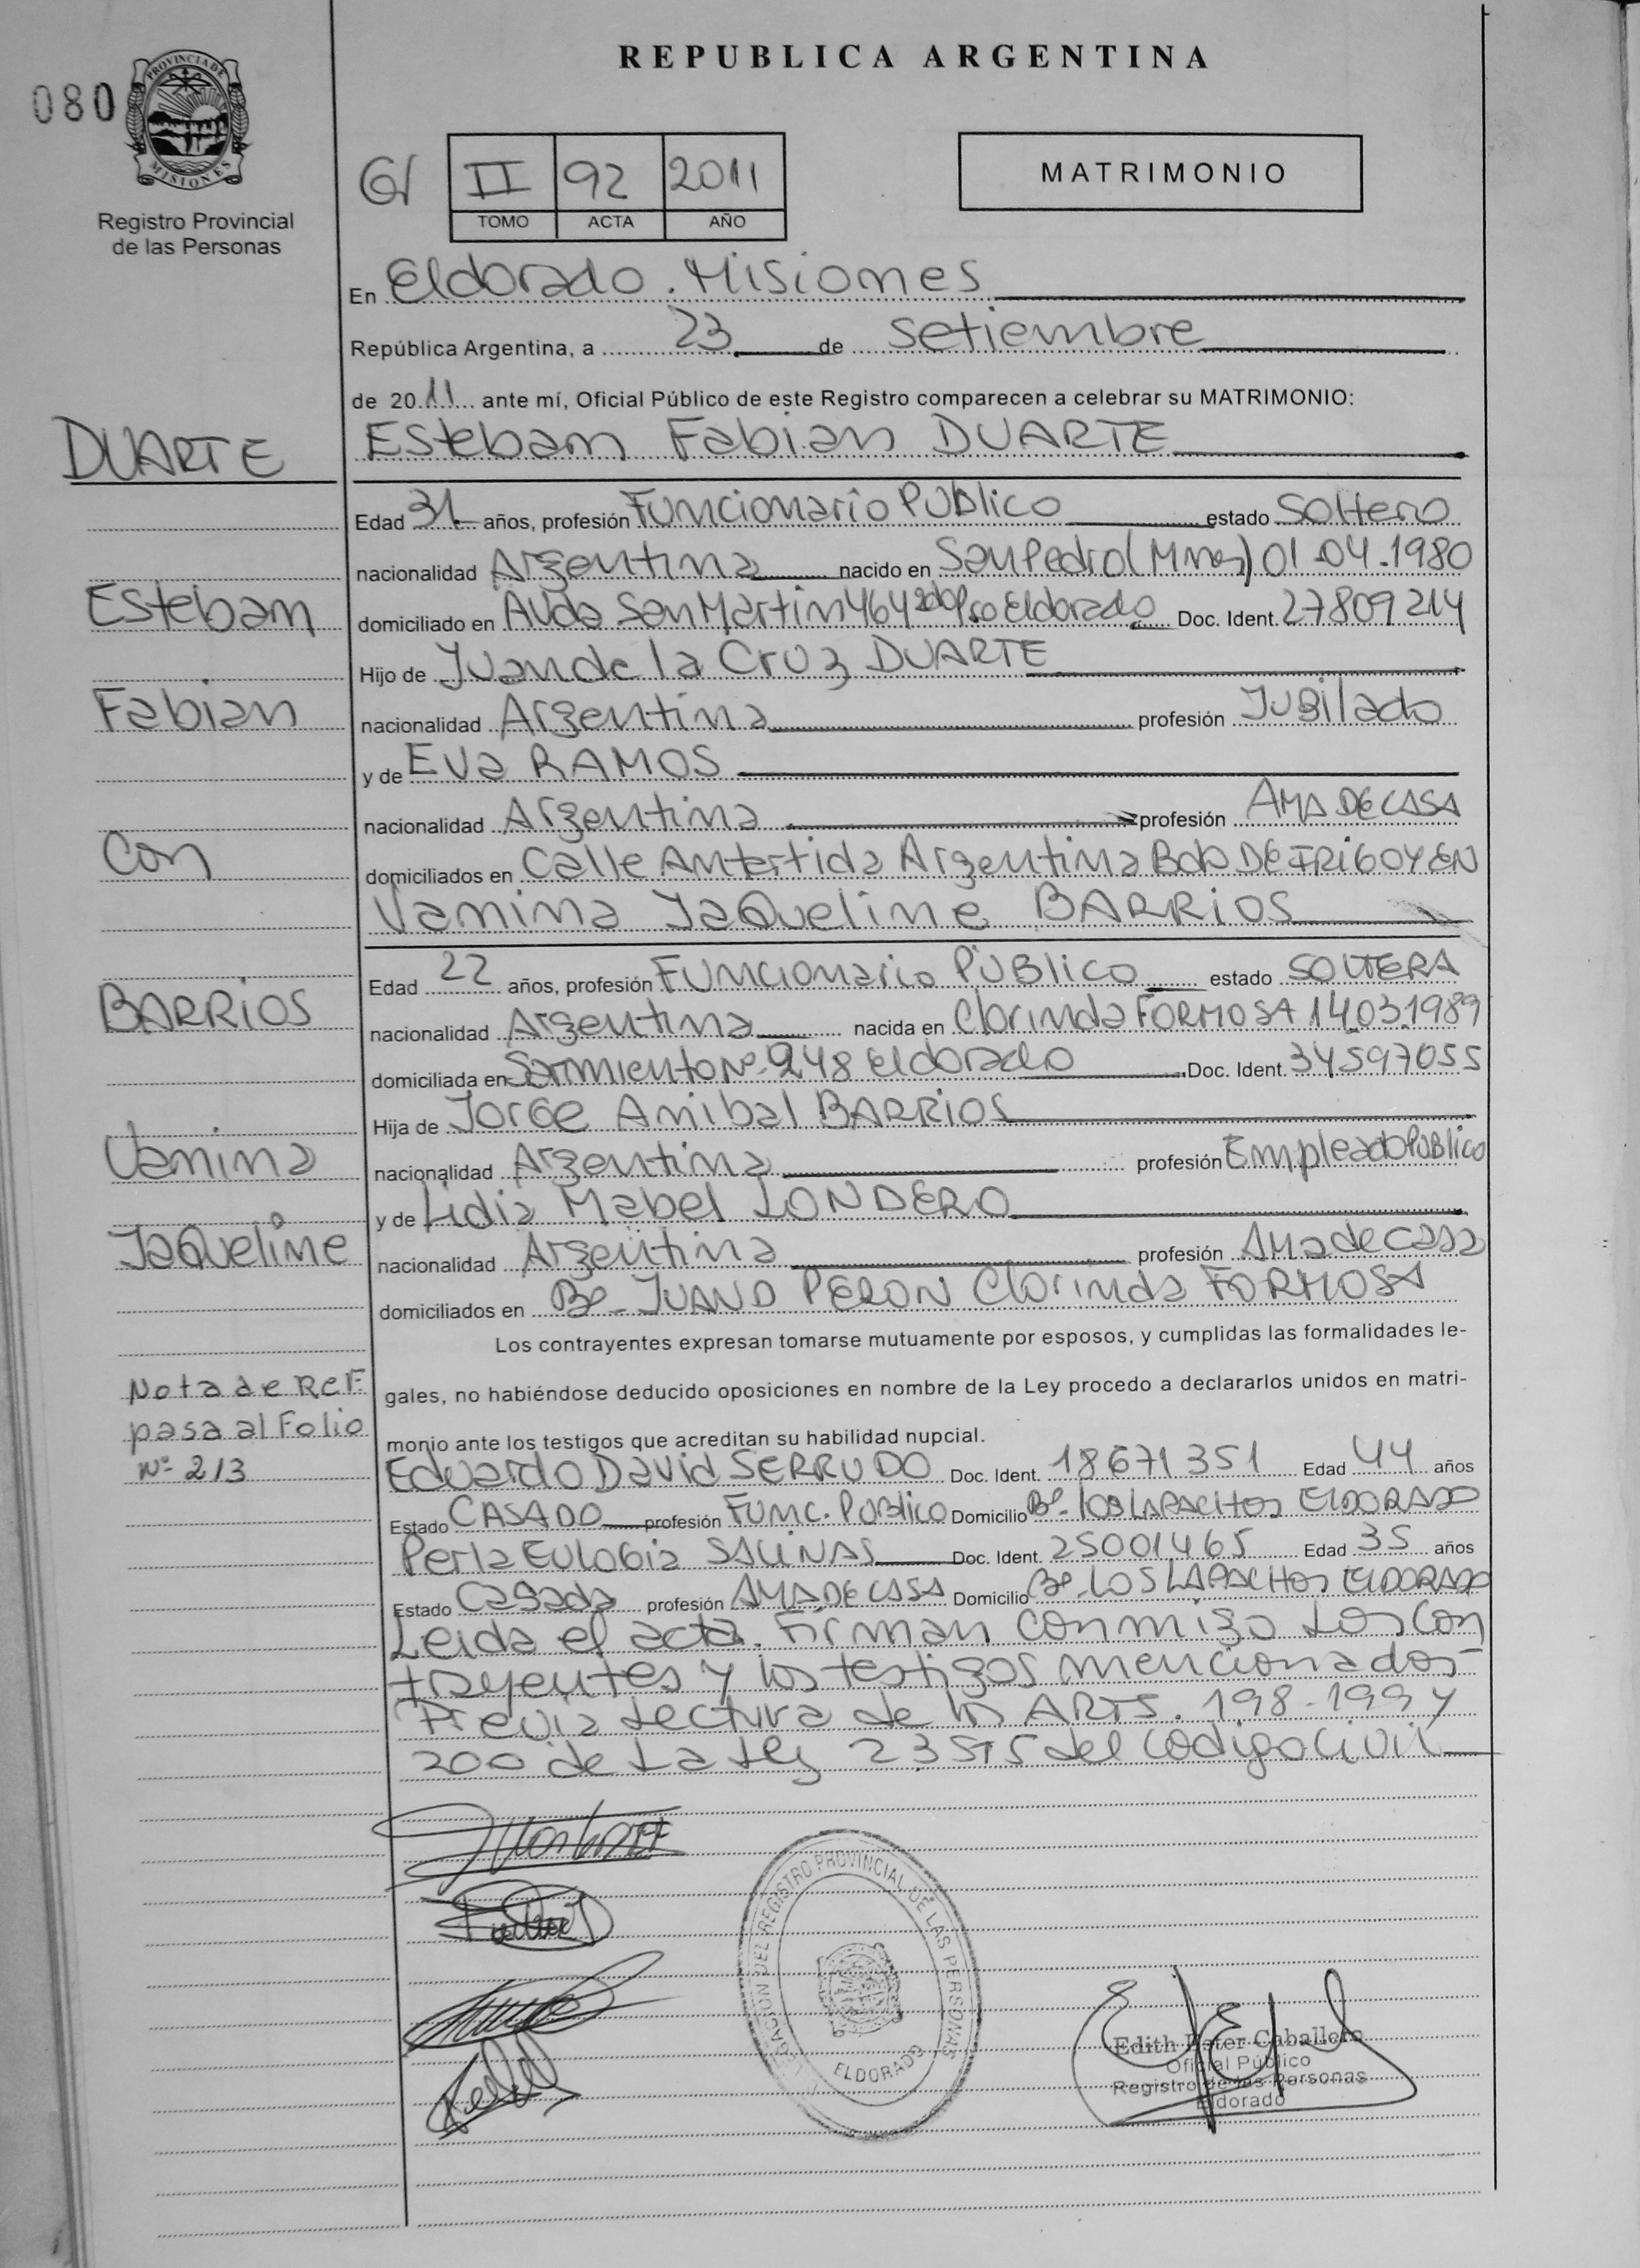 REPUBLICA ARGENTINA
080
PROVINCIA DE MISIONES
Registro Provincial
de las Personas
II 92 2011
TOMO ACTA AÑO
MATRIMONIO
En Eldorado. Misiones
República Argentina, a 23 de setiembre
de 2011 ante mí, Oficial Público de este Registro comparecen a celebrar su MATRIMONIO:
DUARTE
Esteban Fabian DUARTE
Edad 31 años, profesión Funcionario Publico estado Soltero
nacionalidad Argentina nacido en San Pedro (Mnes) 01.04.1980
Esteban
domiciliado en Avda San Martin 464 2do Pso Eldorado Doc. Ident. 27809214
Hijo de Juan de la Cruz DUARTE
Fabian
nacionalidad Argentina profesión Jubilado
y de Eva RAMOS
nacionalidad Argentina profesión AMA DE CASA
con
domiciliados en Calle Antartida Argentina Bdo DE IRIGOYEN
Vanina Jaqueline BARRIOS
Edad 22 años, profesión Funcionario Publico estado SOLTERA
BARRIOS
nacionalidad Argentina nacida en Clorinda FORMOSA 14.03.1989
domiciliada en Sarmiento Nº 248 Eldorado Doc. Ident. 34597055
Hija de Jorge Anibal BARRIOS
Vanina
nacionalidad Argentina profesión Empleado Publico
y de Lidia Mabel LONDERO
Jaqueline
nacionalidad Argentina profesión Ama de casa
domiciliados en Bº JUAN D PERON Clorinda FORMOSA
Los contrayentes expresan tomarse mutuamente por esposos, y cumplidas las formalidades le-
gales, no habiéndose deducido oposiciones en nombre de la Ley procedo a declararlos unidos en matri-
monio ante los testigos que acreditan su habilidad nupcial.
Nota de Ref.
pasa al Folio
Nº 213
Eduardo David SERRUDO Doc. Ident. 18671351 Edad 44 años
Estado CASADO profesión Func. Publico Domicilio Bº Los LAPACHOS ELDORADO
Perla Eulogia SALINAS Doc. Ident. 25001465 Edad 35 años
Estado Casada profesión AMA DE CASA Domicilio Bº LOS LAPACHOS ELDORADO
Leida el acta. Firman conmigo Los con
trayentes y los testigos mencionados
Previa Lectura de los ARTS. 198-199 y
200 de La Ley 23515 del codigo civil
DELEGACION DEL REGISTRO PROVINCIAL DE LAS PERSONAS
ELDORADO
Edith Ester Caballero
Oficial Público
Registro de las Personas
Eldorado